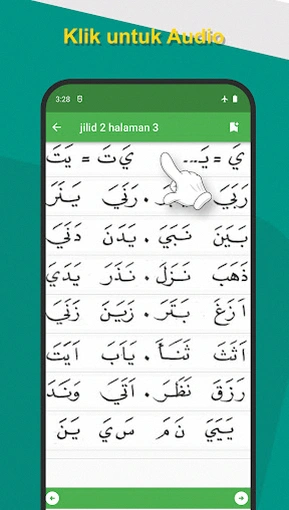 Klik untuk Audio
3:28
jilid 2 halaman 3
يَ = يَـ... يَ تَ = يَتَ
رَبَيَ . رَنَيَ يَنَرَ
بَيَنَ نَبَيَ . يَدَنَ دَنَيَ
ذَهَبَ نَزَلَ . نَذَرَ يَدَيَ
اَزَغَ بَتَرَ . زَيَنَ زَنَيَ
اَثَثَ ثَنَاَ . يَاَبَ اَيَتَ
رَزَقَ نَظَرَ . اَتَيَ وَنَدَ
يَيَيَ نَ مَ سَ يَ يَنَ